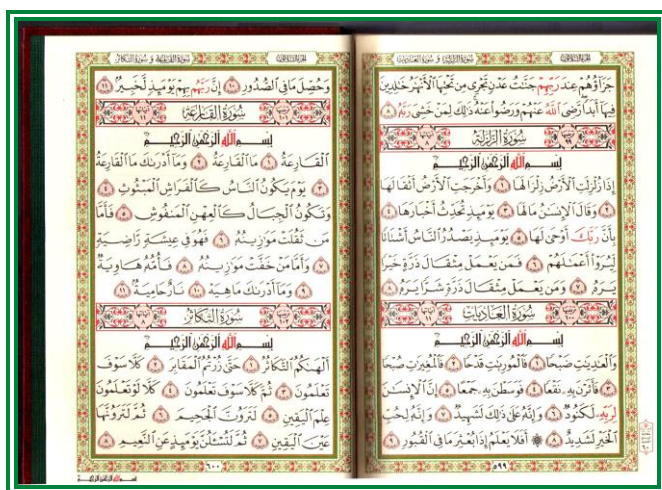 الجزء الثلاثون
سورة الزلزلة و سورة العاديات
جَزَاؤُهُمْ عِندَ رَبِّهِمْ جَنَّٰتُ عَدْنٍ تَجْرِى مِن تَحْتِهَا ٱلْأَنْهَٰرُ خَٰلِدِينَ
فِيهَآ أَبَدًا رَّضِىَ ٱللَّهُ عَنْهُمْ وَرَضُوا۟ عَنْهُ ذَٰلِكَ لِمَنْ خَشِىَ رَبَّهُۥ ٨
سُورَةُ الزَّلْزَلَةِ
بِسْمِ ٱللَّهِ ٱلرَّحْمَٰنِ ٱلرَّحِيمِ
إِذَا زُلْزِلَتِ ٱلْأَرْضُ زِلْزَالَهَا ١ وَأَخْرَجَتِ ٱلْأَرْضُ أَثْقَالَهَا
٢ وَقَالَ ٱلْإِنسَٰنُ مَا لَهَا ٣ يَوْمَئِذٍ تُحَدِّثُ أَخْبَارَهَا ٤
بِأَنَّ رَبَّكَ أَوْحَىٰ لَهَا ٥ يَوْمَئِذٍ يَصْدُرُ ٱلنَّاسُ أَشْتَاتًا
لِّيُرَوْا۟ أَعْمَٰلَهُمْ ٦ فَمَن يَعْمَلْ مِثْقَالَ ذَرَّةٍ خَيْرًا
يَرَهُۥ ٧ وَمَن يَعْمَلْ مِثْقَالَ ذَرَّةٍ شَرًّا يَرَهُۥ ٨
سُورَةُ العَادِيَاتِ
بِسْمِ ٱللَّهِ ٱلرَّحْمَٰنِ ٱلرَّحِيمِ
وَٱلْعَٰدِيَٰتِ ضَبْحًا ١ فَٱلْمُورِيَٰتِ قَدْحًا ٢ فَٱلْمُغِيرَٰتِ صُبْحًا
٣ فَأَثَرْنَ بِهِۦ نَقْعًا ٤ فَوَسَطْنَ بِهِۦ جَمْعًا ٥ إِنَّ ٱلْإِنسَٰنَ
لِرَبِّهِۦ لَكَنُودٌ ٦ وَإِنَّهُۥ عَلَىٰ ذَٰلِكَ لَشَهِيدٌ ٧ وَإِنَّهُۥ لِحُبِّ
ٱلْخَيْرِ لَشَدِيدٌ ٨ ۞ أَفَلَا يَعْلَمُ إِذَا بُعْثِرَ مَا فِى ٱلْقُبُورِ ٩
٥٩٩
سورة القارعة و سورة التكاثر
الجزء الثلاثون
وَحُصِّلَ مَا فِى ٱلصُّدُورِ ١٠ إِنَّ رَبَّهُم بِهِمْ يَوْمَئِذٍ لَّخَبِيرٌۢ ١١
سُورَةُ القَارِعَةِ
بِسْمِ ٱللَّهِ ٱلرَّحْمَٰنِ ٱلرَّحِيمِ
ٱلْقَارِعَةُ ١ مَا ٱلْقَارِعَةُ ٢ وَمَآ أَدْرَىٰكَ مَا ٱلْقَارِعَةُ
٣ يَوْمَ يَكُونُ ٱلنَّاسُ كَٱلْفَرَاشِ ٱلْمَبْثُوثِ ٤
وَتَكُونُ ٱلْجِبَالُ كَٱلْعِهْنِ ٱلْمَنفُوشِ ٥ فَأَمَّا
مَن ثَقُلَتْ مَوَٰزِينُهُۥ ٦ فَهُوَ فِى عِيشَةٍ رَّاضِيَةٍ
٧ وَأَمَّا مَنْ خَفَّتْ مَوَٰزِينُهُۥ ٨ فَأُمُّهُۥ هَاوِيَةٌ
٩ وَمَآ أَدْرَىٰكَ مَا هِيَهْ ١٠ نَارٌ حَامِيَةٌۢ ١١
سُورَةُ التَّكَاثُرِ
بِسْمِ ٱللَّهِ ٱلرَّحْمَٰنِ ٱلرَّحِيمِ
أَلْهَىٰكُمُ ٱلتَّكَاثُرُ ١ حَتَّىٰ زُرْتُمُ ٱلْمَقَابِرَ ٢ كَلَّا سَوْفَ
تَعْلَمُونَ ٣ ثُمَّ كَلَّا سَوْفَ تَعْلَمُونَ ٤ كَلَّا لَوْ تَعْلَمُونَ
عِلْمَ ٱلْيَقِينِ ٥ لَتَرَوُنَّ ٱلْجَحِيمَ ٦ ثُمَّ لَتَرَوُنَّهَا
عَيْنَ ٱلْيَقِينِ ٧ ثُمَّ لَتُسْـَٔلُنَّ يَوْمَئِذٍ عَنِ ٱلنَّعِيمِ ٨
٦٠٠
بِسْمِ ٱللَّهِ ٱلرَّحْمَٰنِ ٱلرَّحِيمِ